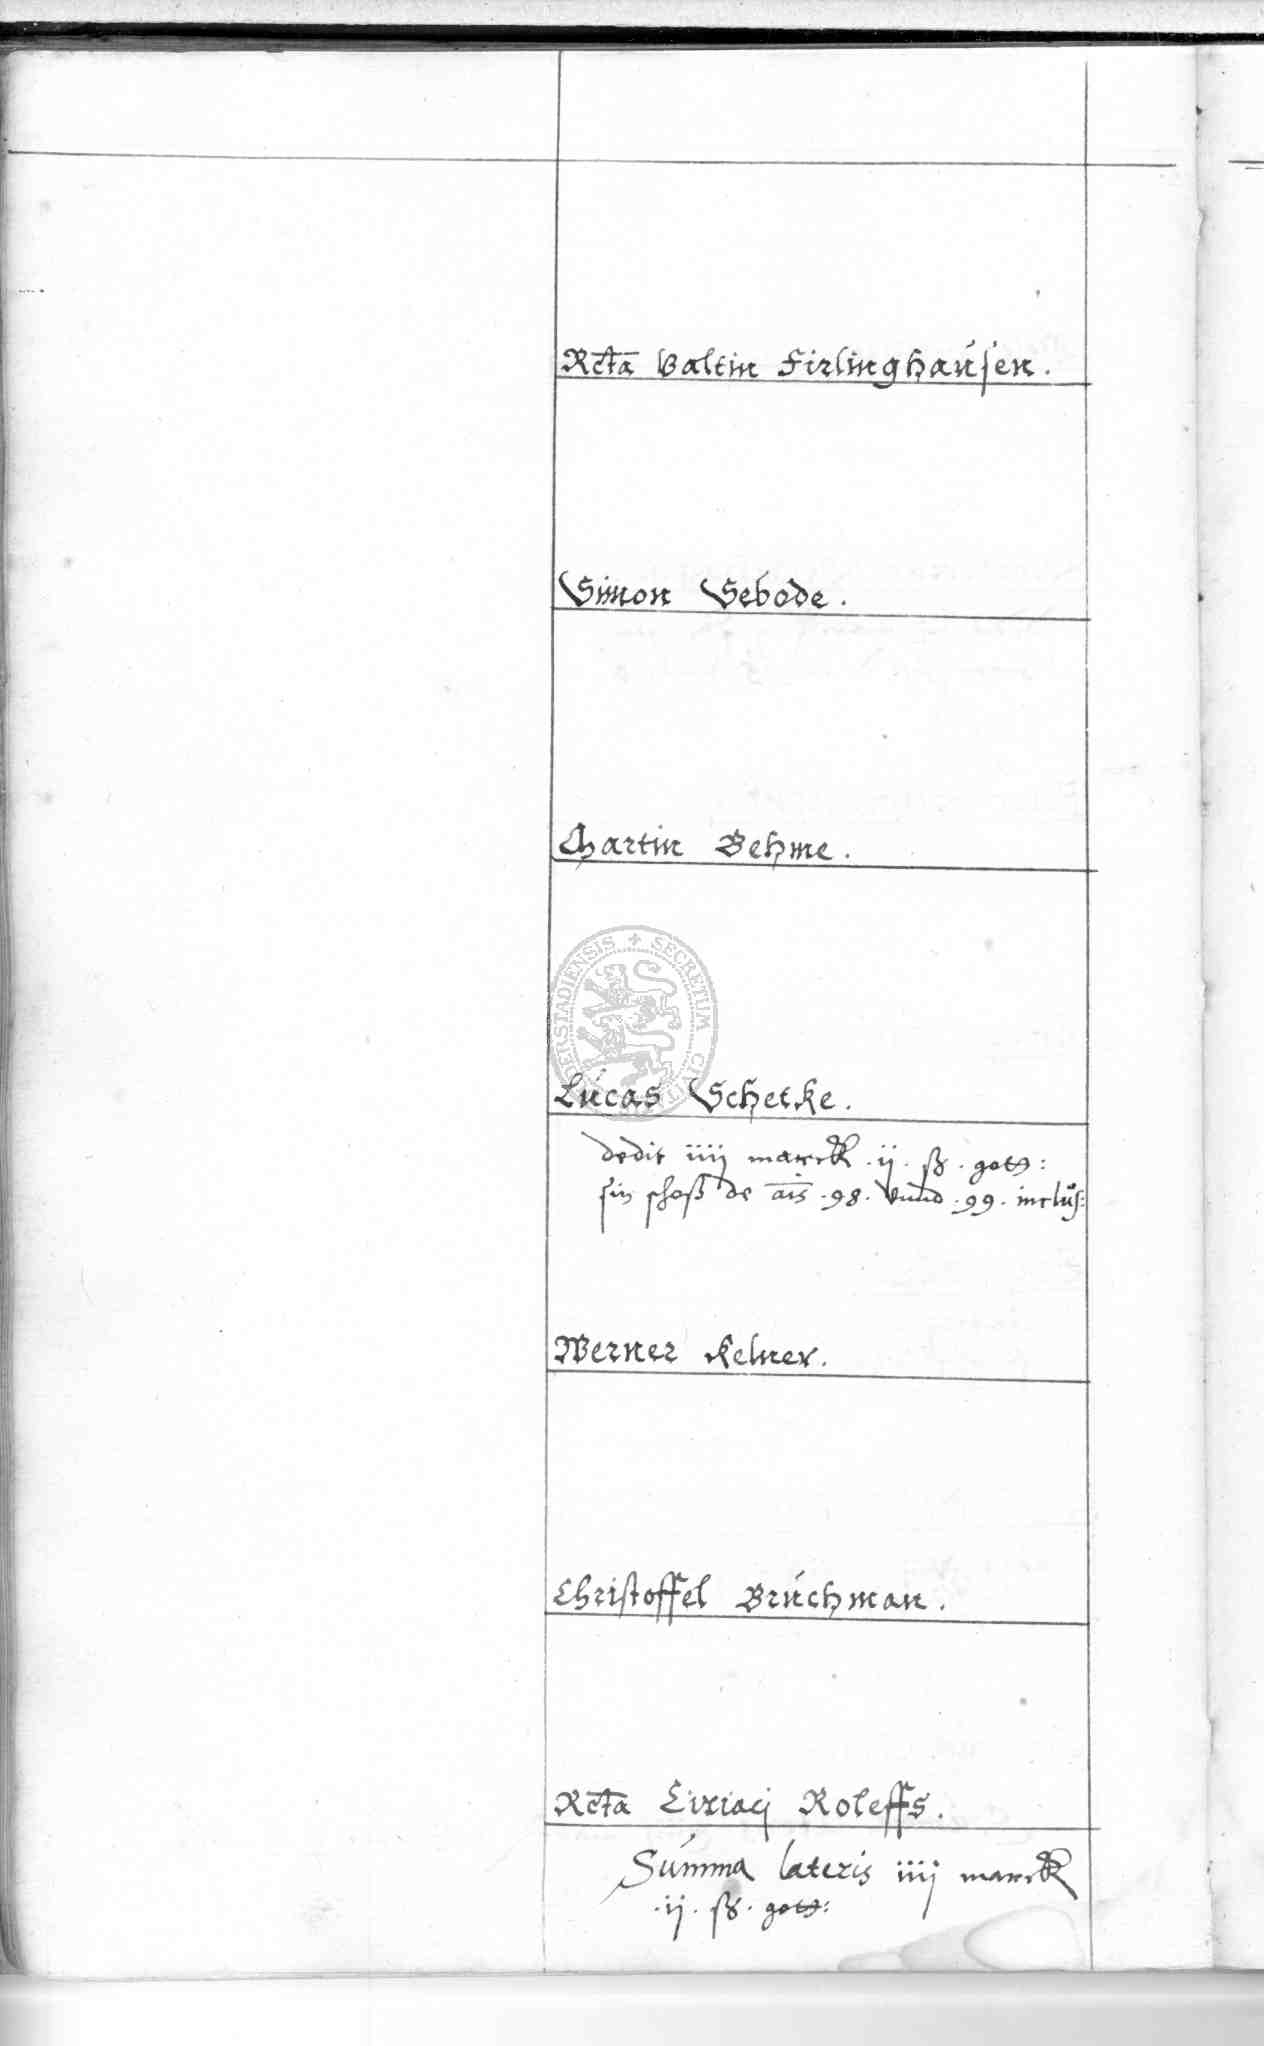 Rcta Valtin Firlinghausen.
Simon Sebode.
Martin Behme.
SECRETUM CIVITA DERSTADIENSIS
Lucas Schetke.
dedit iiij marck .ij. ß. gots:
sin schoß de ais .98. vnnd .99. inclus:
Werner Kelner.
Christoffel Bruchman.
Rcta Ciriacj Roleffs.
Summa lateris iiij marck
.ij. ß. gots: